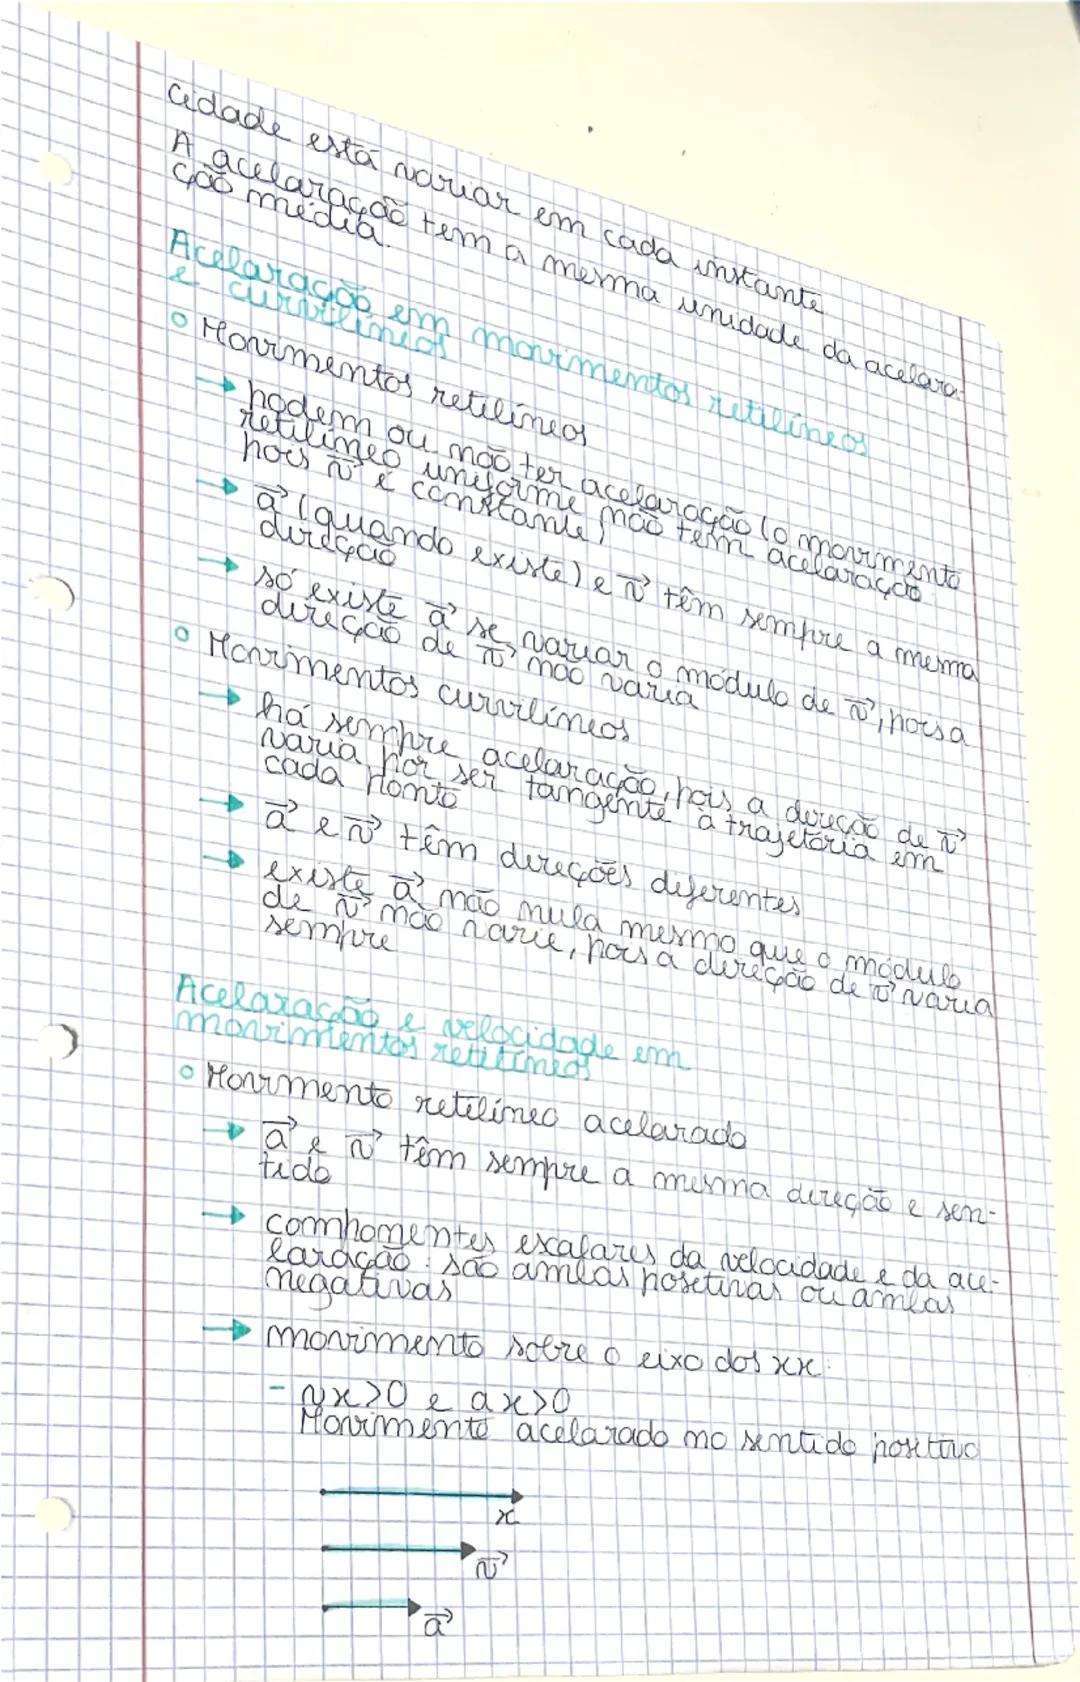 cidade está variar em cada instante.
A acelaração tem a mesma unidade da acelara-
ção média.
Acelaração em movimentos retilíneos
e curvilíneos
Movimentos retilíneos
→ podem ou não ter acelaração (o movimento
retilíneo uniforme não tem acelaração
pois v⃗ é constante)
→ a⃗ (quando existe) e v⃗ têm sempre a mesma
direção
→ só existe a⃗ se variar o módulo de v⃗, pois a
direção de v⃗ não varia
Movimentos curvilíneos
→ há sempre acelaração, pois a direção de v⃗
varia por ser tangente à trajetória em
cada ponto
→ a⃗ e v⃗ têm direções diferentes
→ existe a⃗ não nula mesmo que o módulo
de v⃗ não varie, pois a direção de v⃗ varia
sempre
Acelaração e velocidade em
movimentos retilíneos
Movimento retilíneo acelarado
→ a⃗ e v⃗ têm sempre a mesma direção e sen-
tido
→ componentes escalares da velocidade e da ace-
laração: são ambas positivas ou ambas
negativas
→ movimento sobre o eixo dos xx:
- vx>0 e ax>0
Movimento acelarado no sentido positivo
x
v⃗
a⃗